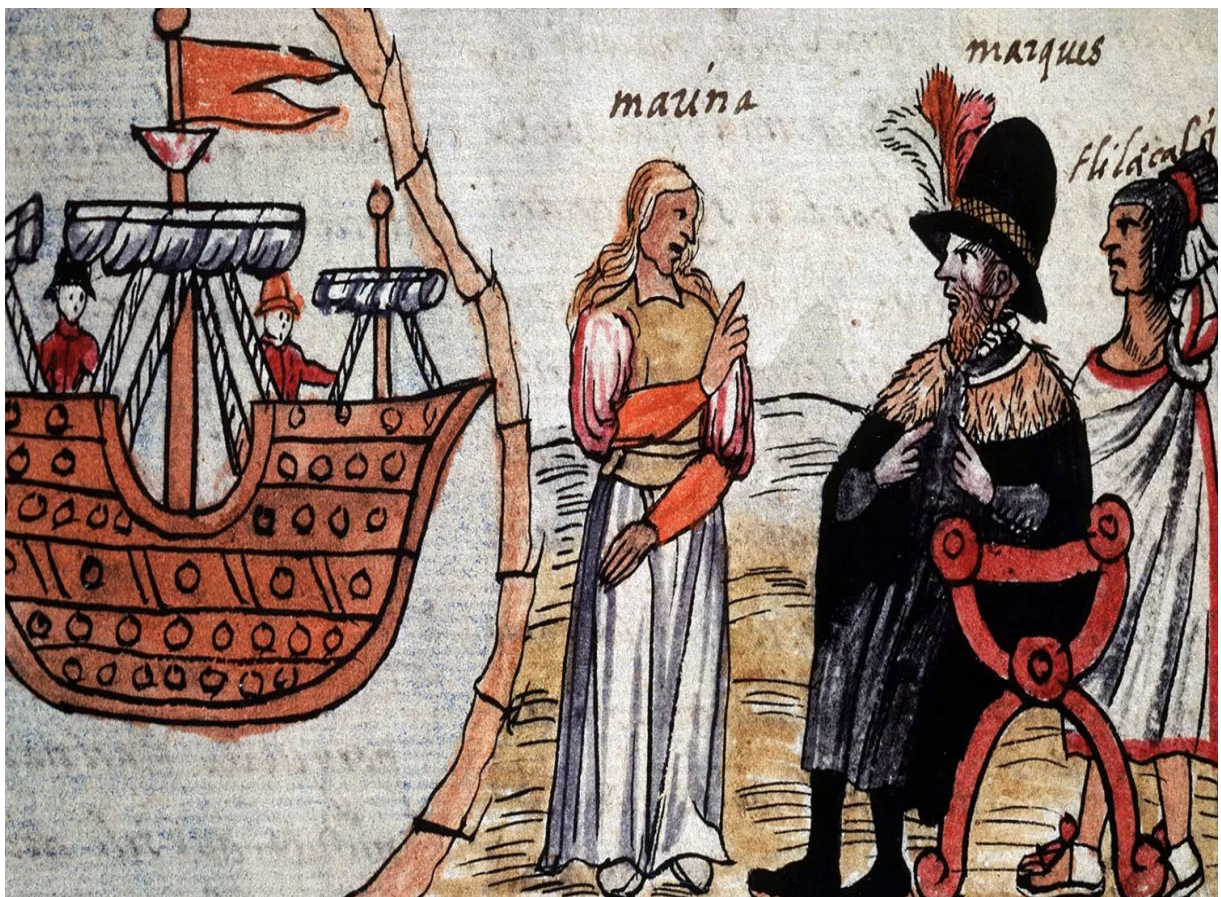 maúna
marques
tlilácalq́